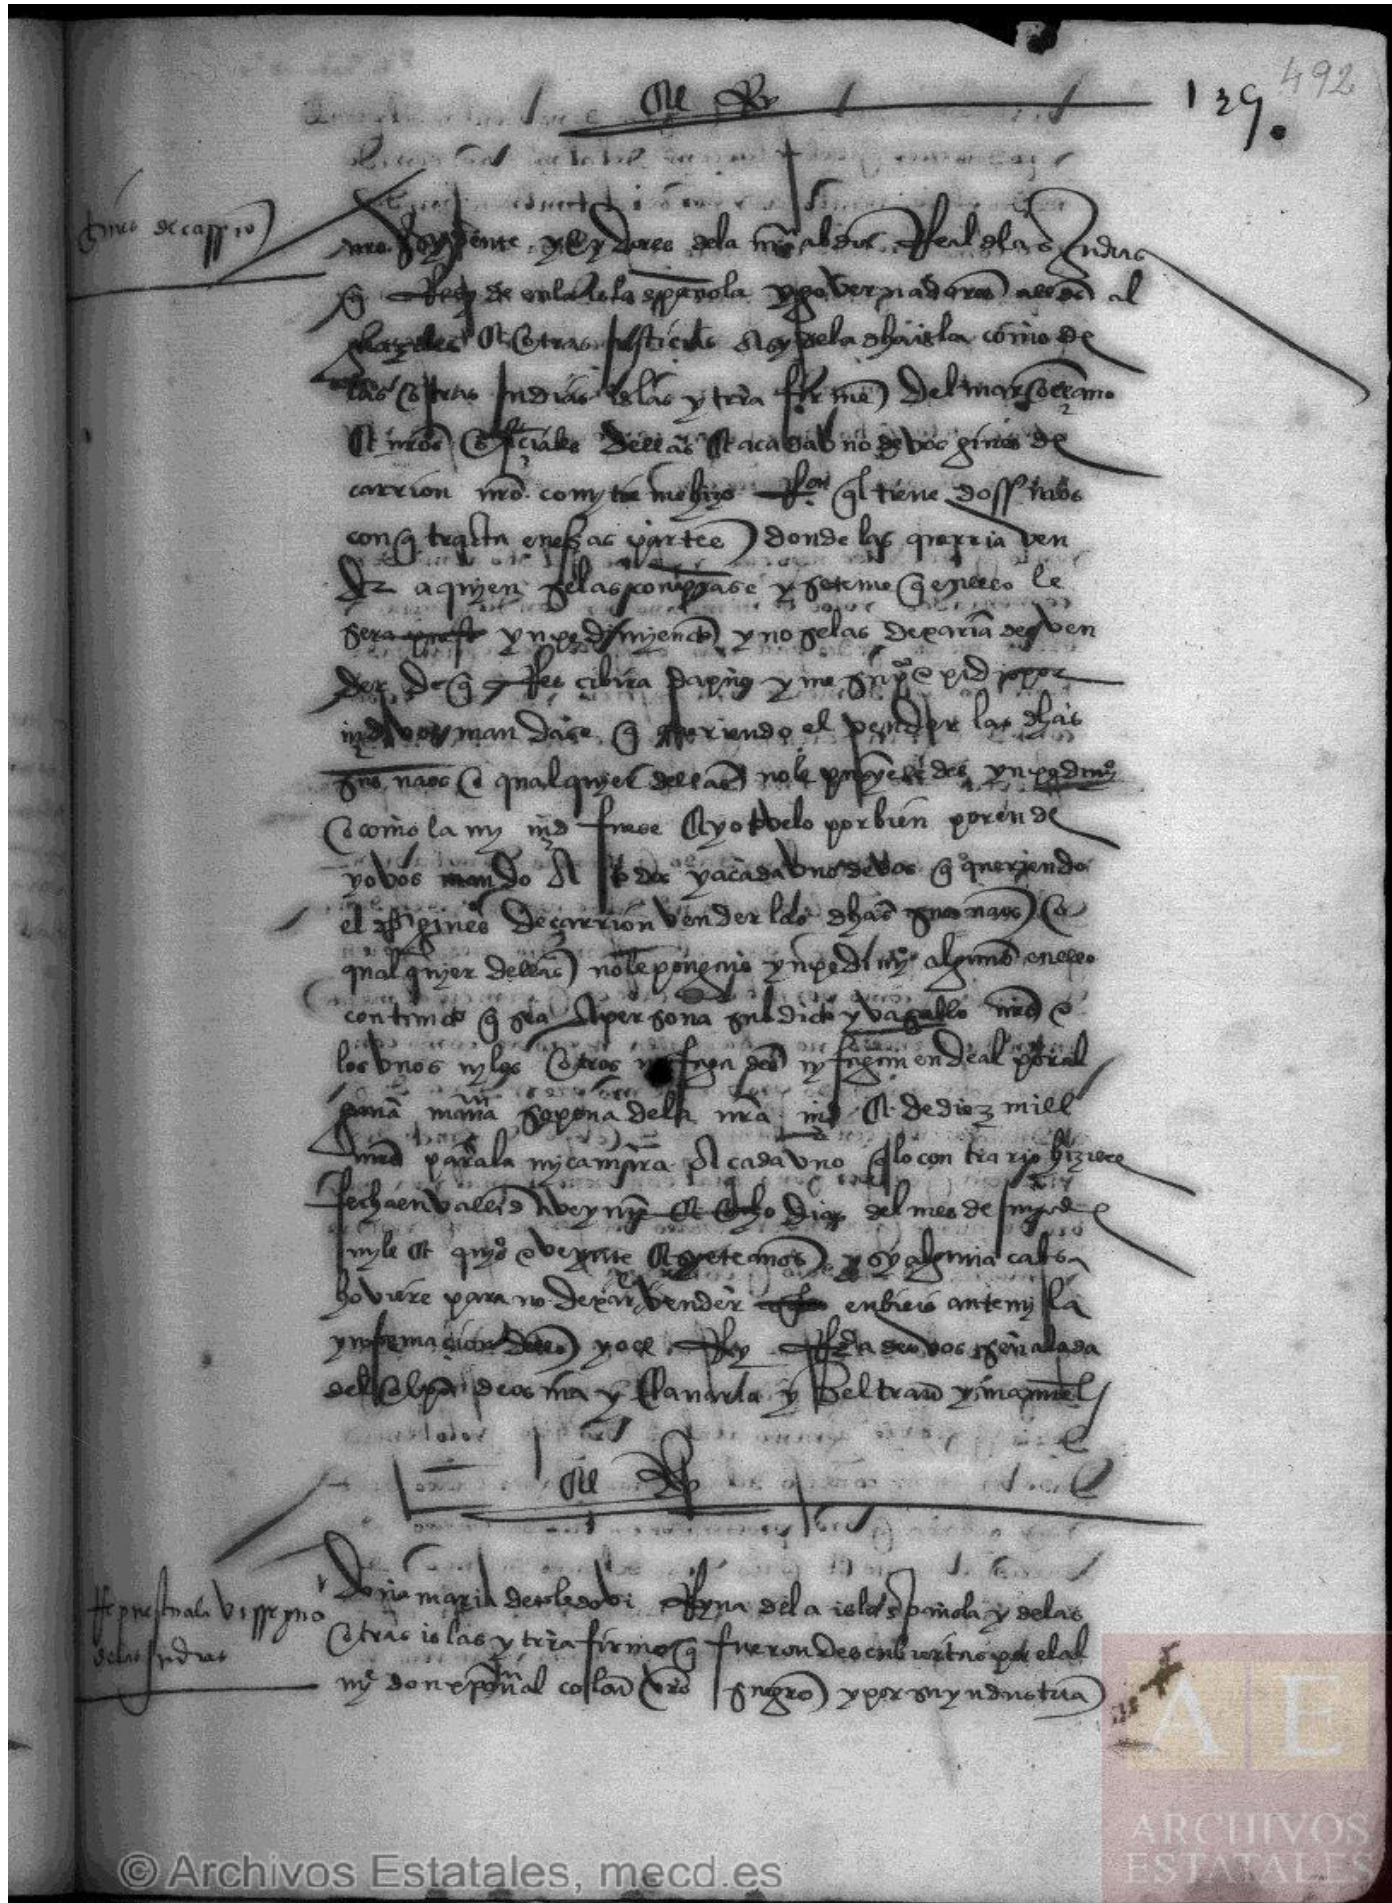 492
129.
El Rey
gines de carrion
nro presydente y oydores dela nra abdiª Real delas yndias
q Resyden enla isla española y governadores alcds al
guaziles & otras justicias asy dela dha isla como de
las otras yndias islas y trra firme del mar oceano
& nros oficiales dellas & a cada uno de vos gines de
carrion nro comytre me hizo Ron ql tiene dos naos
con q trata en esas partes donde las querria ven
der a quyen gelas conprase y se teme q en ello le
sera ynpedimyento y no gelas dexarian de ven
der de q Rescibira daño y me supco e pidio por
md vos mandase q queriendo el vender las dhas
sus naos o qualquyer dellas no le pusyesedes ynpedimyº
o como la my md fuese & yo tovelo por bien por ende
yo vos mando a todos y a cada uno de vos q queriendo
el dho gines de carrion vender las dhas sus naos o
qualquyer dellas no le pongais ynpedimyº alguno en ello
contanto q sea a persona subdito y vasallo nro e
los unos ny los otros no fagades ny fagan ende al por al
guna manª so pena dela nra md & de diez mill
mrs para la my camara a cada uno q lo contrario hiziere
fecha en vallid a veynte & ocho dias del mes de
myle & quyºs e veynte & syete años y sy alguna cabsa
hoviere para no dexar vender enbieis ante my la
ynformacion dello yo el Rey Refrendada de vos señalada
del obpo de osma y canaria y beltran y manuel
El Rey
Respuesta ala vissreyna
delas yndias
Doña maria de toledo vi Reyna dela isla española y delas
otras islas y trra firme q fueron descubiertas por el al
myte don xpoval colon vro suegro y por su yndustria
© Archivos Estatales, mecd.es
A E
ARCHIVOS
ESTATALES